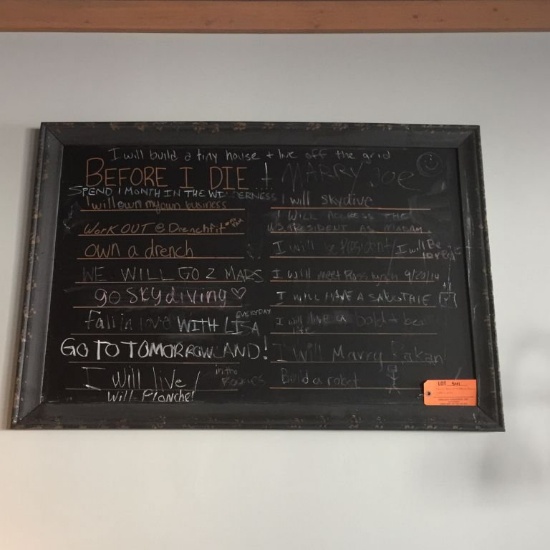 I will build a tiny house + live off the grid
BEFORE I DIE...!
MARRY Joe
SPEND 1 MONTH IN THE WILDERNESS
I will own my own business
WORK OUT @ DrenchFit
own a drench
WE WILL GO 2 MARS
go skydiving ♡
fall in love WITH LISA
EVERYDAY
GO TO TOMORROWLAND!
I will live
in the
Will Planche!
I will skydive
I WILL ADDRESS THE
PRESIDENT AS MADAM
I will be President
I will Be
I will meet
I WILL HAVE A SMOOTHIE
I will live a bold
life
I Will Marry
Build a robot